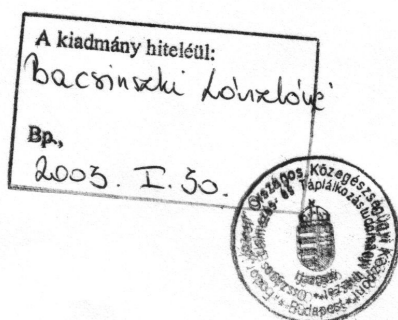 A kiadmány hiteléül:
Bacsinszki Lászlóné
Bp.,
2003. I. 30.
Országos Közegészségügyi Központ
Országos Élelmezés- és Táplálkozástudományi Intézet
Budapest